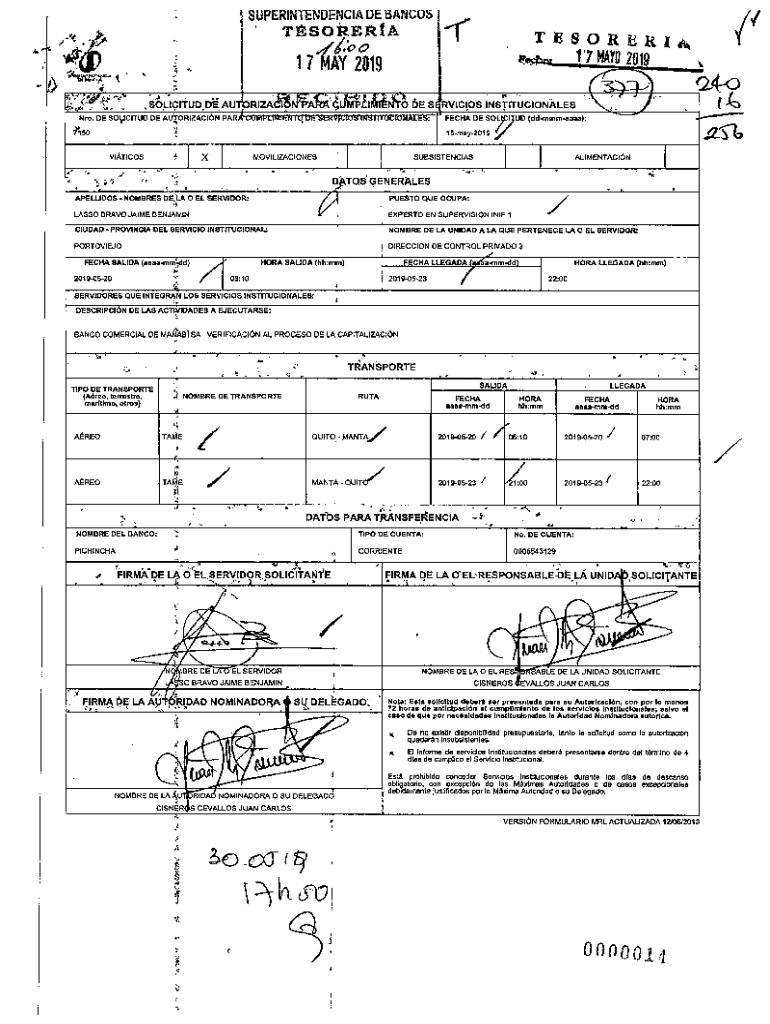 SUPERINTENDENCIA DE BANCOS
TESORERÍA
16:00
17 MAY 2019
RECIBIDO
T
TESORERIA
Fecha: 17 MAYO 2019
377
240
16
256
SOLICITUD DE AUTORIZACIÓN PARA CUMPLIMIENTO DE SERVICIOS INSTITUCIONALES
Nro. DE SOLICITUD DE AUTORIZACIÓN PARA CUMPLIMIENTO DE SERVICIOS INSTITUCIONALES: FECHA DE SOLICITUD (dd-mmm-aaaa):
VIÁTICOS X MOVILIZACIONES SUBSISTENCIAS ALIMENTACIÓN
DATOS GENERALES
APELLIDOS - NOMBRES DE LA O EL SERVIDOR: PUESTO QUE OCUPA:
LASSO BRAVO JAIME BENJAMIN EXPERTO EN SUPERVISION INIF 1
CIUDAD - PROVINCIA DEL SERVICIO INSTITUCIONAL: NOMBRE DE LA UNIDAD A LA QUE PERTENECE LA O EL SERVIDOR:
PORTOVIEJO DIRECCION DE CONTROL PRIVADO 2
FECHA SALIDA (aaaa-mm-dd) HORA SALIDA (hh:mm) FECHA LLEGADA (aaaa-mm-dd) HORA LLEGADA (hh:mm)
2019-05-20 2019-05-23 22:00
SERVIDORES QUE INTEGRAN LOS SERVICIOS INSTITUCIONALES:
DESCRIPCIÓN DE LAS ACTIVIDADES A EJECUTARSE:
BANCO COMERCIAL DE MANABÍ SA VERIFICACIÓN AL PROCESO DE LA CAPITALIZACIÓN
TRANSPORTE
TIPO DE TRANSPORTE (Aéreo, terrestre, marítimo, otros) NOMBRE DE TRANSPORTE RUTA SALIDA LLEGADA
FECHA aaaa-mm-dd HORA hh:mm FECHA aaaa-mm-dd HORA hh:mm
AÉREO TAME QUITO - MANTA 2019-05-20 2019-05-20 07:00
AÉREO TAME MANTA - QUITO 2019-05-23 21:00 2019-05-23 22:00
DATOS PARA TRANSFERENCIA
NOMBRE DEL BANCO: TIPO DE CUENTA: No. DE CUENTA:
PICHINCHA CORRIENTE
FIRMA DE LA O EL SERVIDOR SOLICITANTE FIRMA DE LA O EL RESPONSABLE DE LA UNIDAD SOLICITANTE
NOMBRE DE LA O EL SERVIDOR NOMBRE DE LA O EL RESPONSABLE DE LA UNIDAD SOLICITANTE
LASSO BRAVO JAIME BENJAMIN CISNEROS CEVALLOS JUAN CARLOS
FIRMA DE LA AUTORIDAD NOMINADORA O SU DELEGADO
NOMBRE DE LA AUTORIDAD NOMINADORA O SU DELEGADO
CISNEROS CEVALLOS JUAN CARLOS
Nota: Esta solicitud deberá ser presentada para su Autorización, con por lo menos
72 horas de anticipación al cumplimiento de los servicios institucionales; salvo el
caso de que por necesidades institucionales la Autoridad Nominadora autorice.
De no existir disponibilidad presupuestaria, tanto la solicitud como la autorización
quedarán insubsistentes.
El informe de servicios Institucionales deberá presentarse dentro del término de 4
días de cumplido el Servicio Institucional.
Está prohibido conceder Servicios Institucionales durante los días de descanso
obligatorio, con excepción de las Máximas Autoridades o de casos excepcionales
debidamente justificados por la Máxima Autoridad o su Delegado.
VERSIÓN FORMULARIO MRL ACTUALIZADA 12/06/2013
17h50
0000014